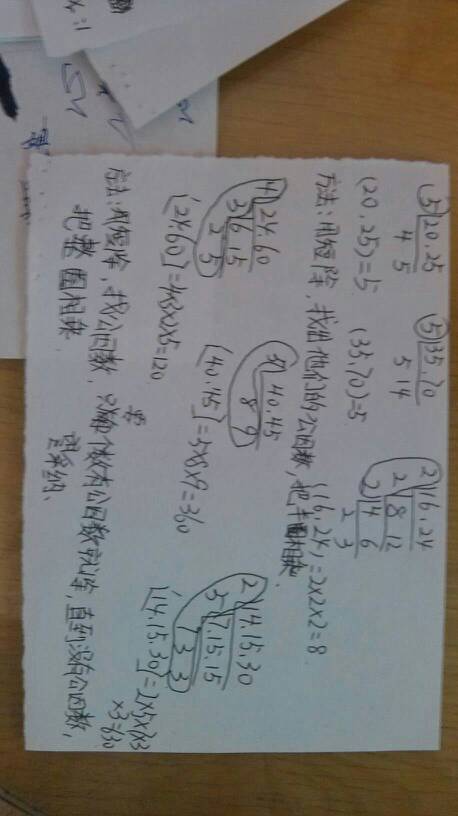 5 20.25 5 35.70 2 16.24
4 5 5 14 2 8 12
2 4 6
2 3
(20.25)=5 (35.70)=5 (16.24)=2×2×2=8
方法:用短除,找出他们的公因数,把半圈相乘.
4 24.60 5 40.45 2 14.15.30
3 6 15 8 9 5 7.15.15
2 5 7 3 3
[24.60]=4×3×2×5=120 [40.45]=5×8×9=360 [14.15.30]=2×5×7×3
×3=630
方法:用短除,找公因数,个数有公因数就除,直到没有公因数,
把整圈相乘.